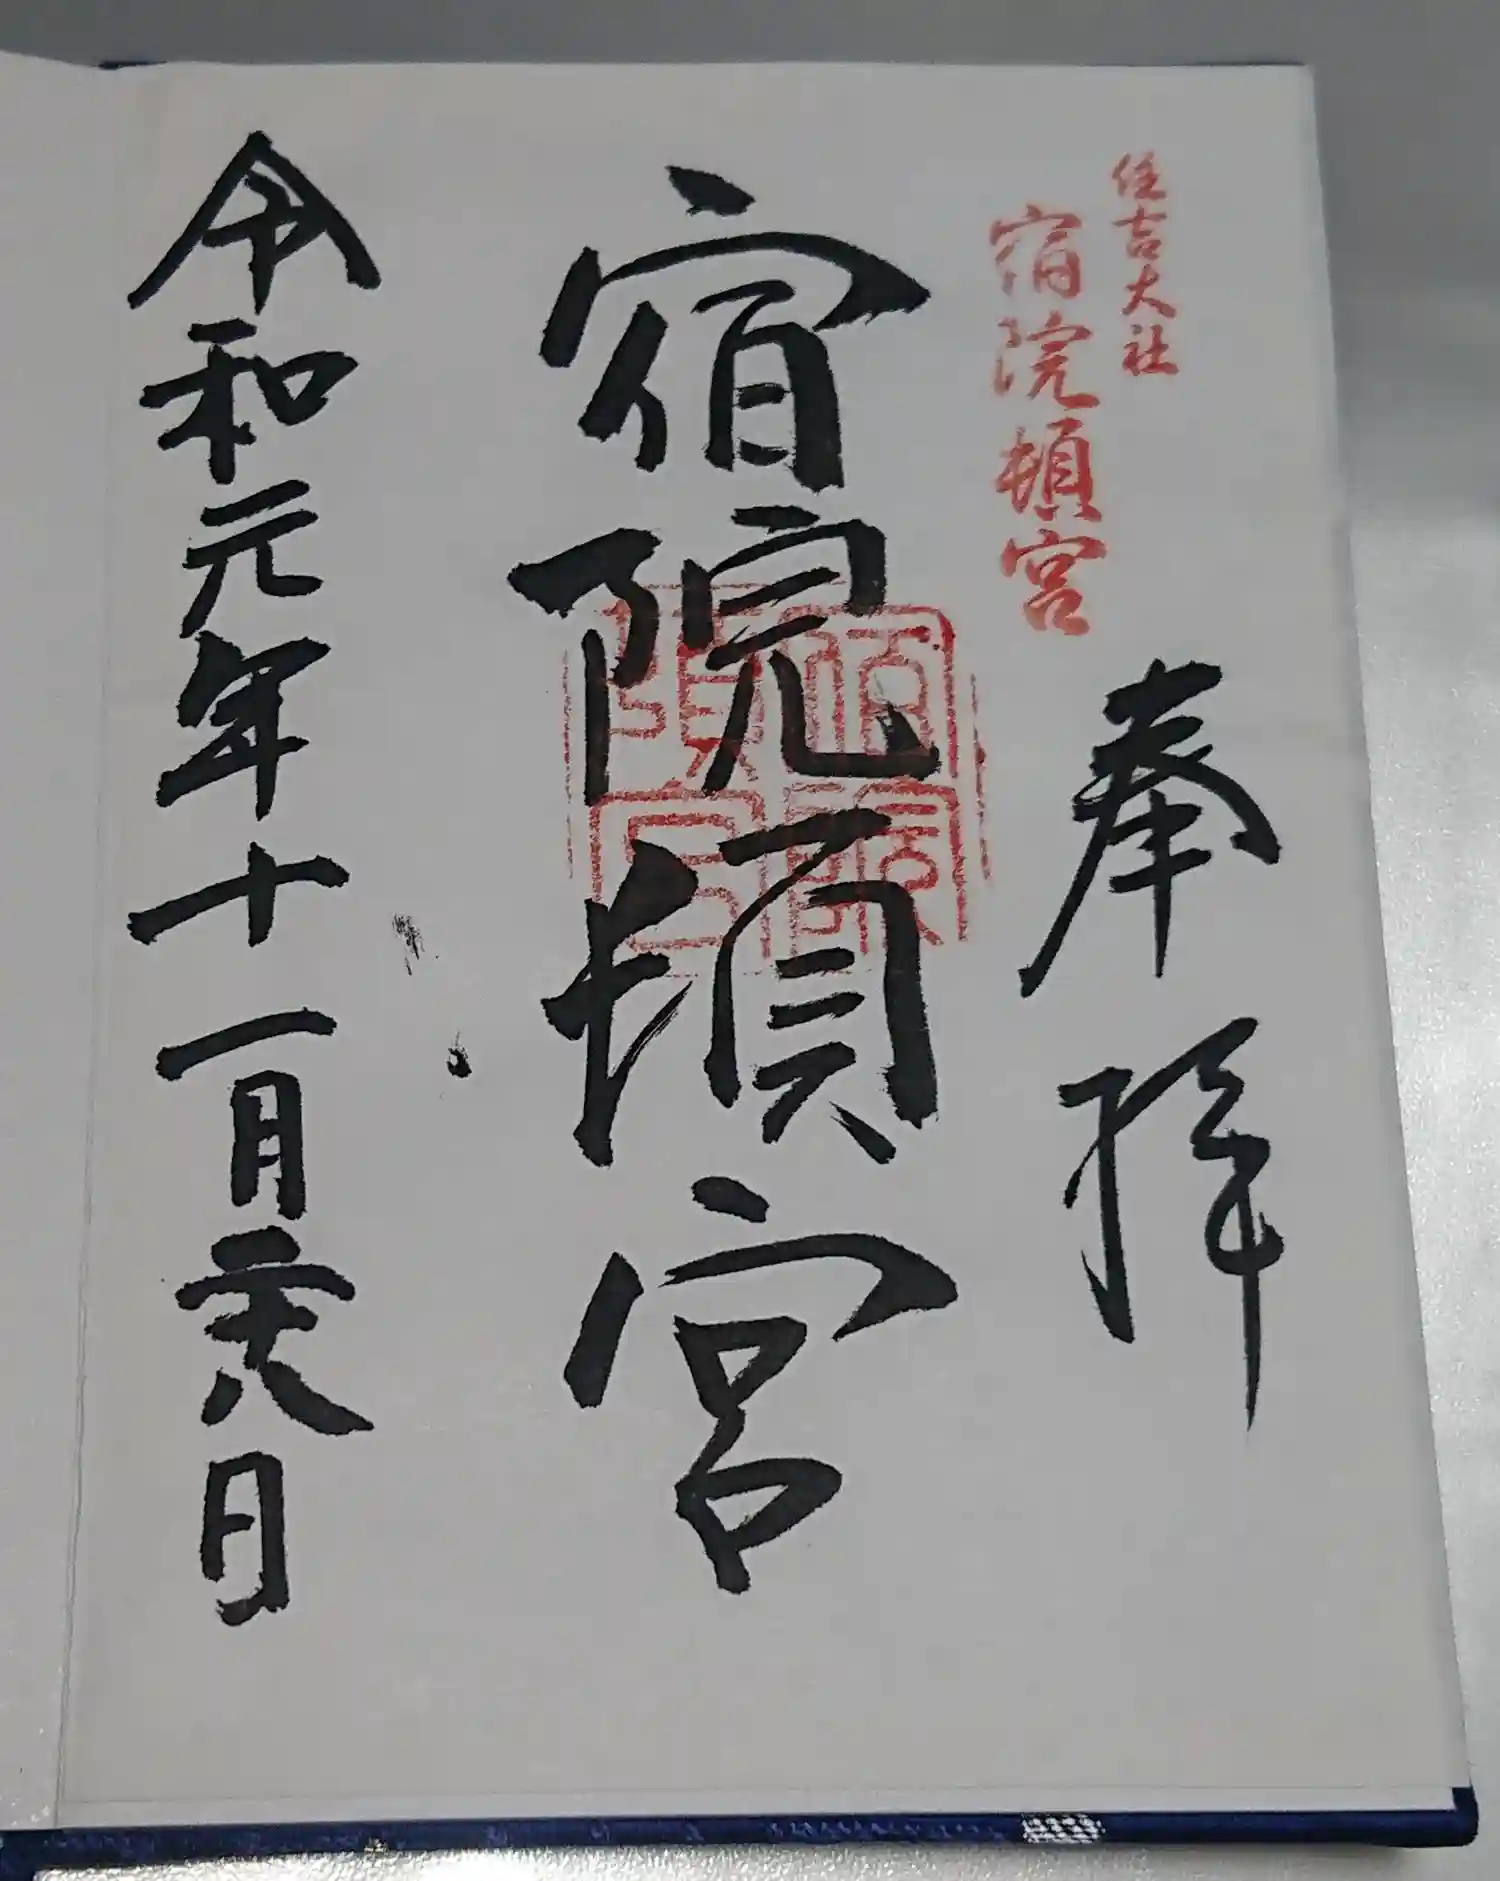 住吉大社
宿院頓宮
奉拝
宿院頓宮
令和元年十一月二十八日